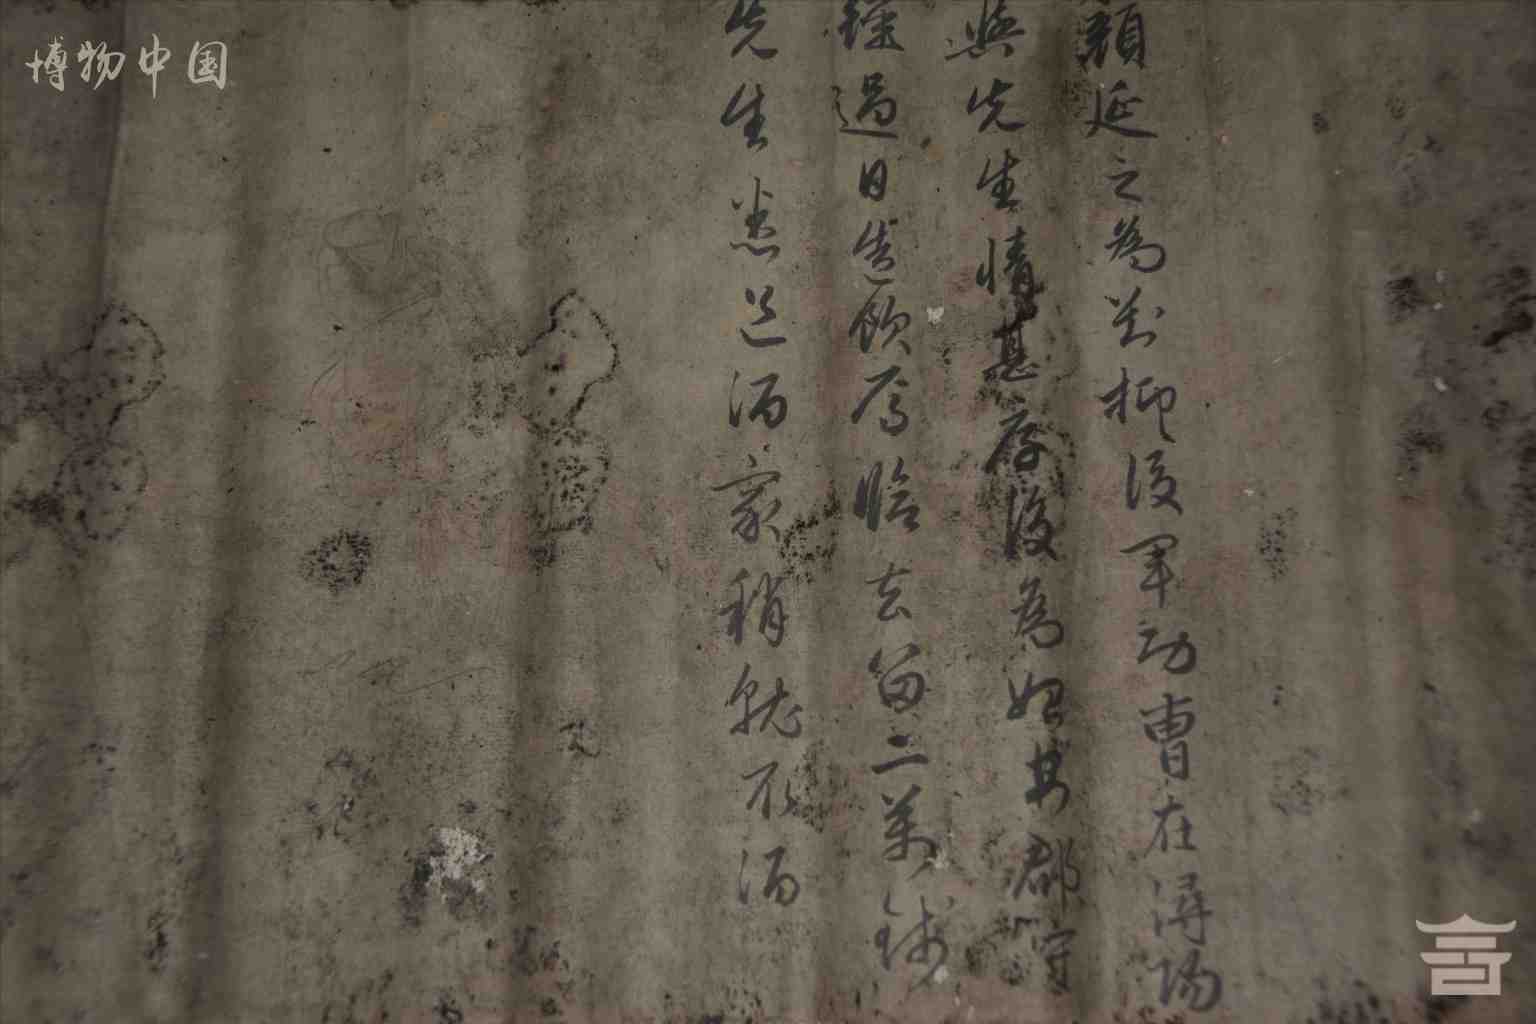 博物中国
顔延之為劉柳後軍功曹在潯陽
與先生情甚厚後為始安郡守
經過日造飲焉臨去留二萬錢
先生悉送酒家稍就取酒